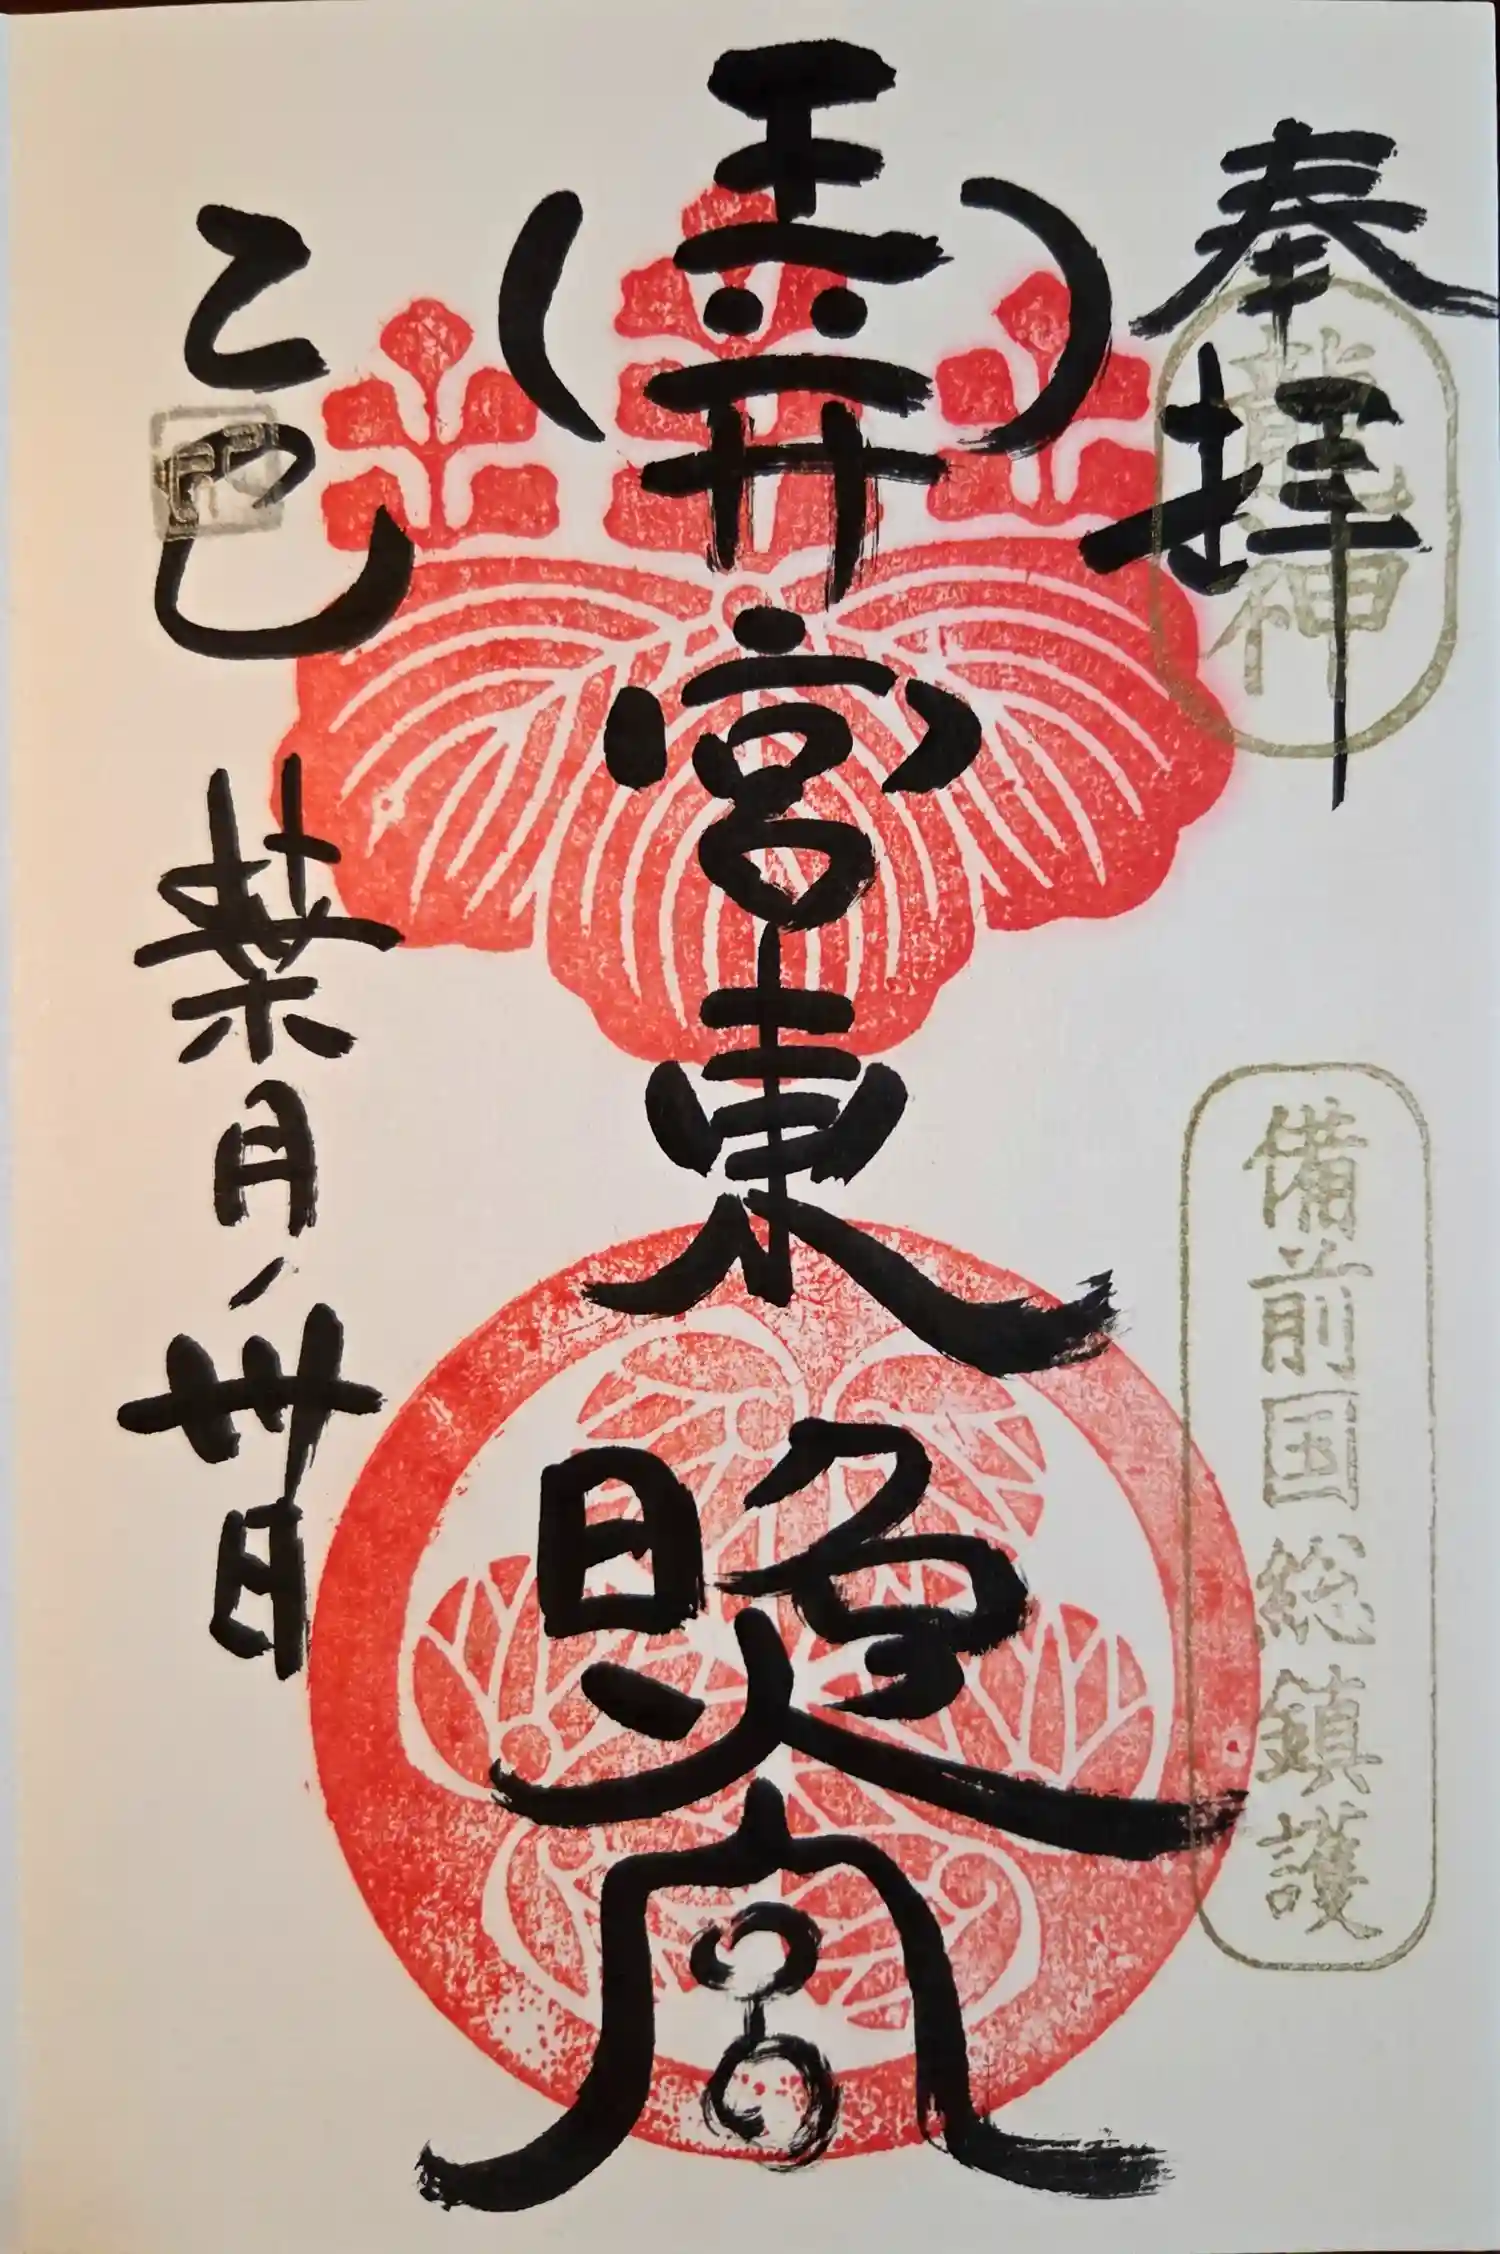 奉拝
龍神
備前国総鎮護
玉井宮東照宮
乙巳
葉月ノ卅日